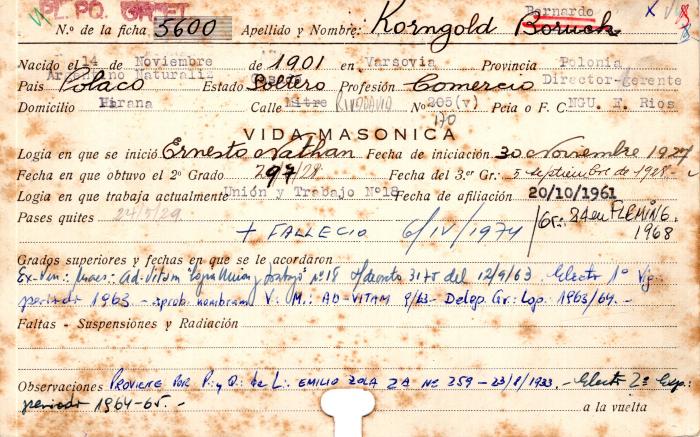 Bernardo
N.º de la ficha 5600 Apellido y Nombre: Korngold Boruch
Nacido el 14 de Noviembre de 1901 en Varsovia Provincia Polonia
Argentino Naturaliz Casado Director-gerente
Pais Polaco Estado Soltero Profesión Comercio
Domicilio Calle Mitre Rivadavia Nº 205(v) Pcia o F. C NGU. E. Rios
170
VIDA MASONICA
Logia en que se inició Ernesto Nathan Fecha de iniciación 30 Noviembre 1927
Fecha en que obtuvo el 2º Grado Fecha del 3.er Gr.: 5 septiembre de 1928.-
Logia en que trabaja actualmente Unión y Trabajo Nº18 Fecha de afiliación 20/10/1961
Pases quites 24/5/29 Gr: 24 en FLEMING.
1968
+ FALLECIO 6/IV/1974
Grados superiores y fechas en que se le acordaron
Ex-Ven.: Maes: Ad-Vitam Logia Union y Trabajo nº 18 s/decreto 3175 del 12/9/63 Electo 1º Vig.
periodo 1963 - aprob. nombram V.: M.: AD-VITAM 9/63 - Deleg. Gr.: Log. 1963/64. -
Faltas - Suspensiones y Radiación
Observaciones PROVIENE POR P.: y Q.: de L.: EMILIO ZOLA Nº 259 - 23/8/1933. - Electo 2º Exp.:
periodo 1964-65. - a la vuelta